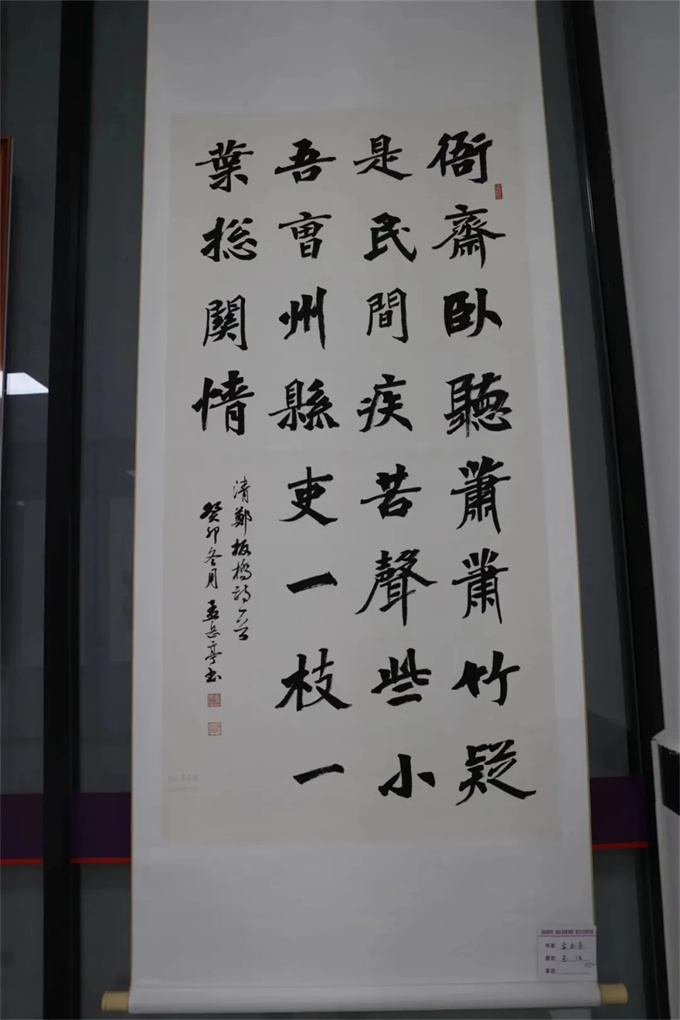 衙齋臥聽蕭蕭竹疑
是民間疾苦聲些小
吾曹州縣吏一枝一
葉總關情
清鄭板橋詩一首
癸卯冬月孟岳亭書